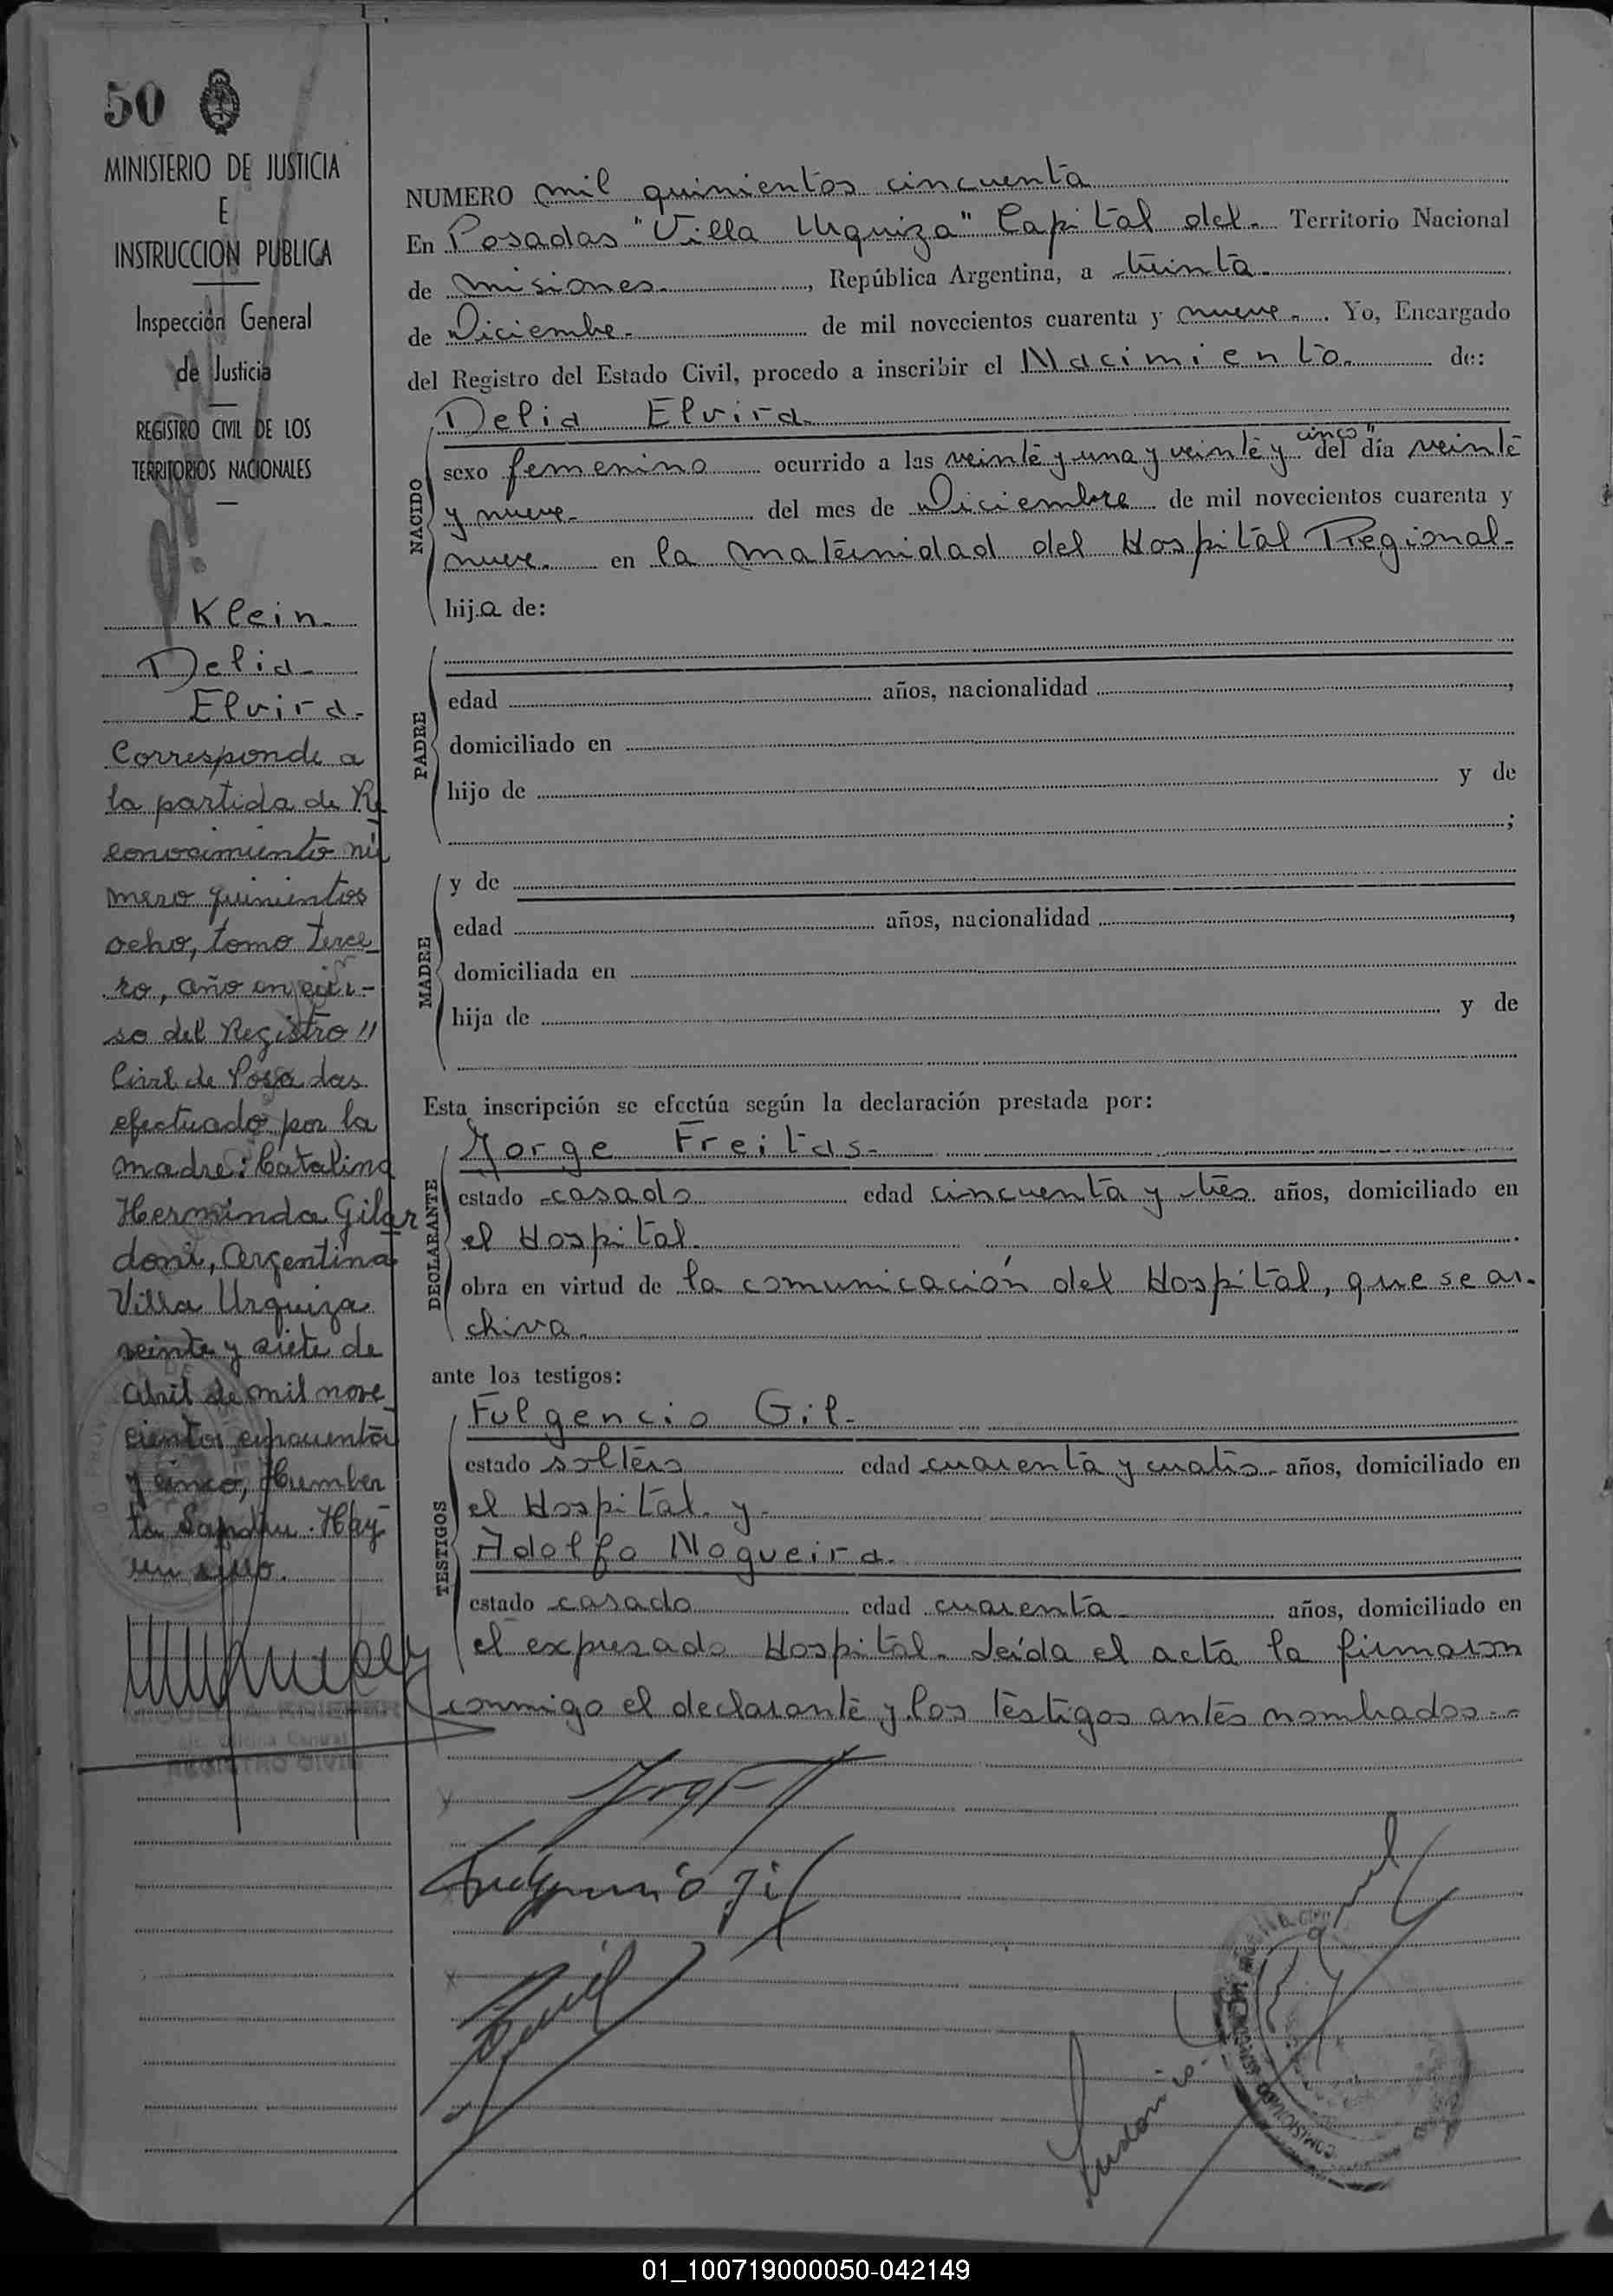 50
MINISTERIO DE JUSTICIA
E
INSTRUCCION PUBLICA
Inspección General
de Justicia
REGISTRO CIVIL DE LOS
TERRITORIOS NACIONALES
Klein.
Delia
Elvira.
Corresponde a
la partida de Re
conocimiento nú
mero quinientos
ocho, tomo terce
ro, año en cur-
so del Registro
Civil de Posadas
efectuado por la
madre: Catalina
Herminda Gilar
doni, Argentina
Villa Urquiza
veinte y siete de
Abril de mil nove
cientos cincuenta
y cinco, Humber
to Hay
un sello.
REGISTRO CIVIL
NUMERO mil quinientos cincuenta
En Posadas "Villa Urquiza" Capital del. Territorio Nacional
de misiones., República Argentina, a treinta.
de Diciembre. de mil novecientos cuarenta y nueve. Yo, Encargado
del Registro del Estado Civil, procedo a inscribir el Nacimiento. de:
NACIDO
Delia Elvira.
sexo femenino ocurrido a las veinte y una y veinte y cinco" del día veinte
y nueve. del mes de Diciembre de mil novecientos cuarenta y
nueve. en la maternidad del Hospital Regional.
hija de:
PADRE
edad años, nacionalidad ,
domiciliado en
hijo de y de
;
MADRE
y de
edad años, nacionalidad ,
domiciliada en
hija de y de
Esta inscripción se efectúa según la declaración prestada por:
DECLARANTE
Jorge Freitas.
estado casado edad cincuenta y tres años, domiciliado en
el Hospital.
obra en virtud de la comunicación del Hospital, que se ar-
chiva.
ante los testigos:
TESTIGOS
Fulgencio Gil.
estado soltero edad cuarenta y cuatro años, domiciliado en
el Hospital. y.
Adolfo Nogueira.
estado casado edad cuarenta años, domiciliado en
el expresado Hospital. Leída el acta la firmaron
conmigo el declarante y los testigos antes nombrados.-
01_100719000050-042149